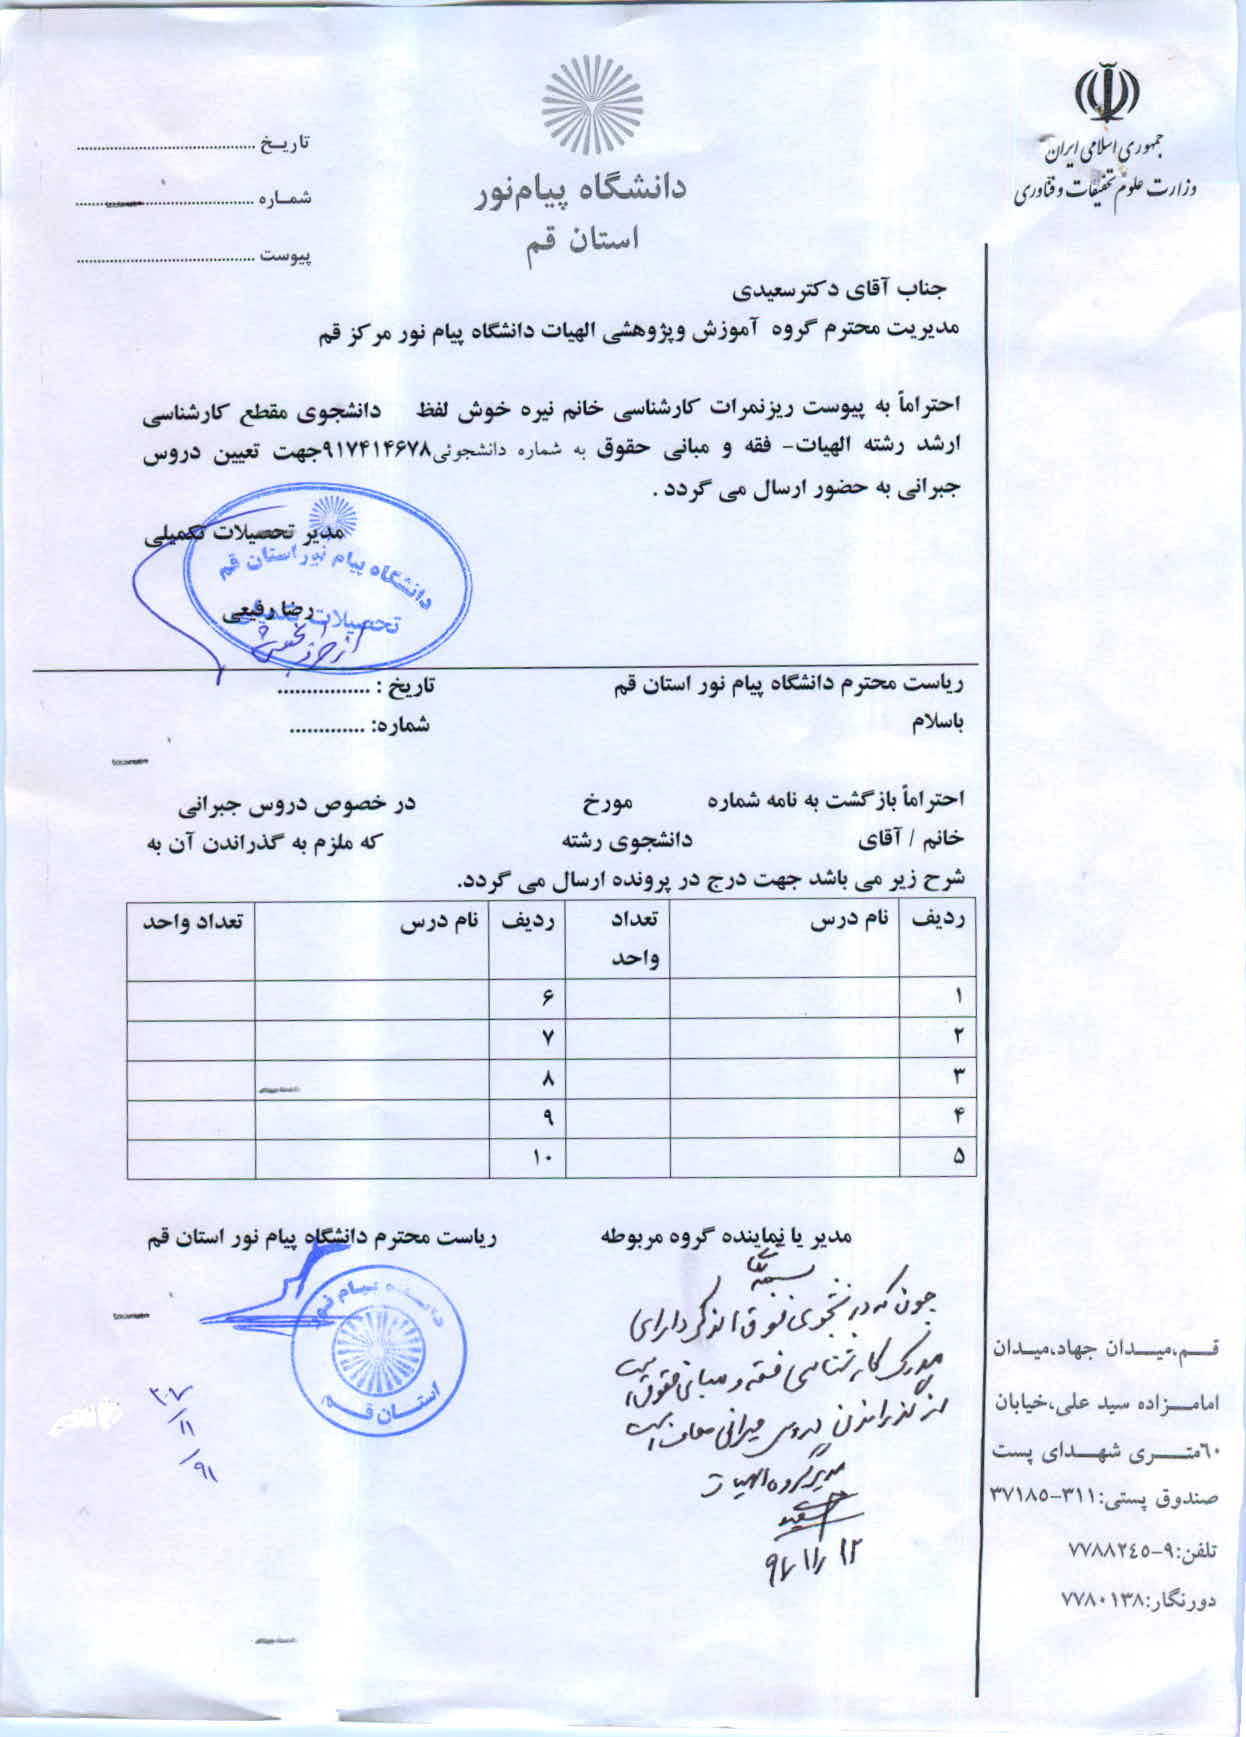 جمهوری اسلامی ایران
وزارت علوم تحقیقات و فناوری
دانشگاه پیام‌نور
استان قم
تاریـخ ........................................
شمـاره ........................................
پیوست ........................................
جناب آقای دکترسعیدی
مدیریت محترم گروه آموزش وپژوهشی الهیات دانشگاه پیام نور مرکز قم
احتراماً به پیوست ریزنمرات کارشناسی خانم نیره خوش لفظ دانشجوی مقطع کارشناسی
ارشد رشته الهیات- فقه و مبانی حقوق به شماره دانشجوئی۹۱۷۴۱۴۶۷۸جهت تعیین دروس
جبرانی به حضور ارسال می گردد .
مدیر تحصیلات تکمیلی
دانشگاه پیام نور استان قم
رضا رفیعی
تحصیلات تکمیلی
ریاست محترم دانشگاه پیام نور استان قم تاریخ : ................
باسلام شماره: .............
احتراماً بازگشت به نامه شماره مورخ در خصوص دروس جبرانی
خانم / آقای دانشجوی رشته که ملزم به گذراندن آن به
شرح زیر می باشد جهت درج در پرونده ارسال می گردد.
ردیف نام درس تعداد واحد ردیف نام درس تعداد واحد
۱ ۶
۲ ۷
۳ ۸
۴ ۹
۵ ۱۰
مدیر یا نماینده گروه مربوطه ریاست محترم دانشگاه پیام نور استان قم
بسمه تعالی
چون که دانشجوی فوق الذکر دارای
مدرک کارشناسی فقه و مبانی حقوق است
از گذراندن دروس جبرانی معاف است
مدیر گروه الهیات
سعیدی
دانشگاه پیام نور
استان قم
قـم،میـدان جهاد،میـدان
امامـزاده سید علی،خیابان
٦٠متـری شهـدای پست
صندوق پستی:۳۱۱-۳۷۱۸۵
تلفن:۹-۷۷۸۸۲٤۵
دورنگار:۷۷۸۰۱۳۸